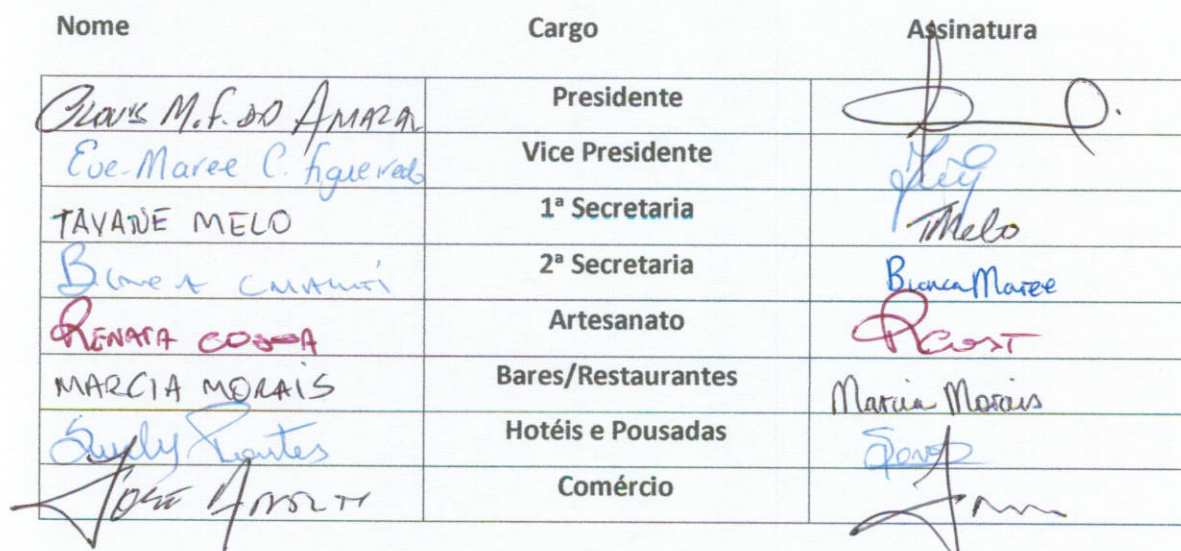 Nome Cargo Assinatura
Clovis M. F. DO AMARAL Presidente
Eve-Maree C. Figueiredo Vice Presidente
TAYANE MELO 1ª Secretaria TMelo
2ª Secretaria Bianca Maree
RENATA COSTA Artesanato RCOST
MARCIA MORAIS Bares/Restaurantes Marcia Morais
Suely Hotéis e Pousadas
JOSE Comércio